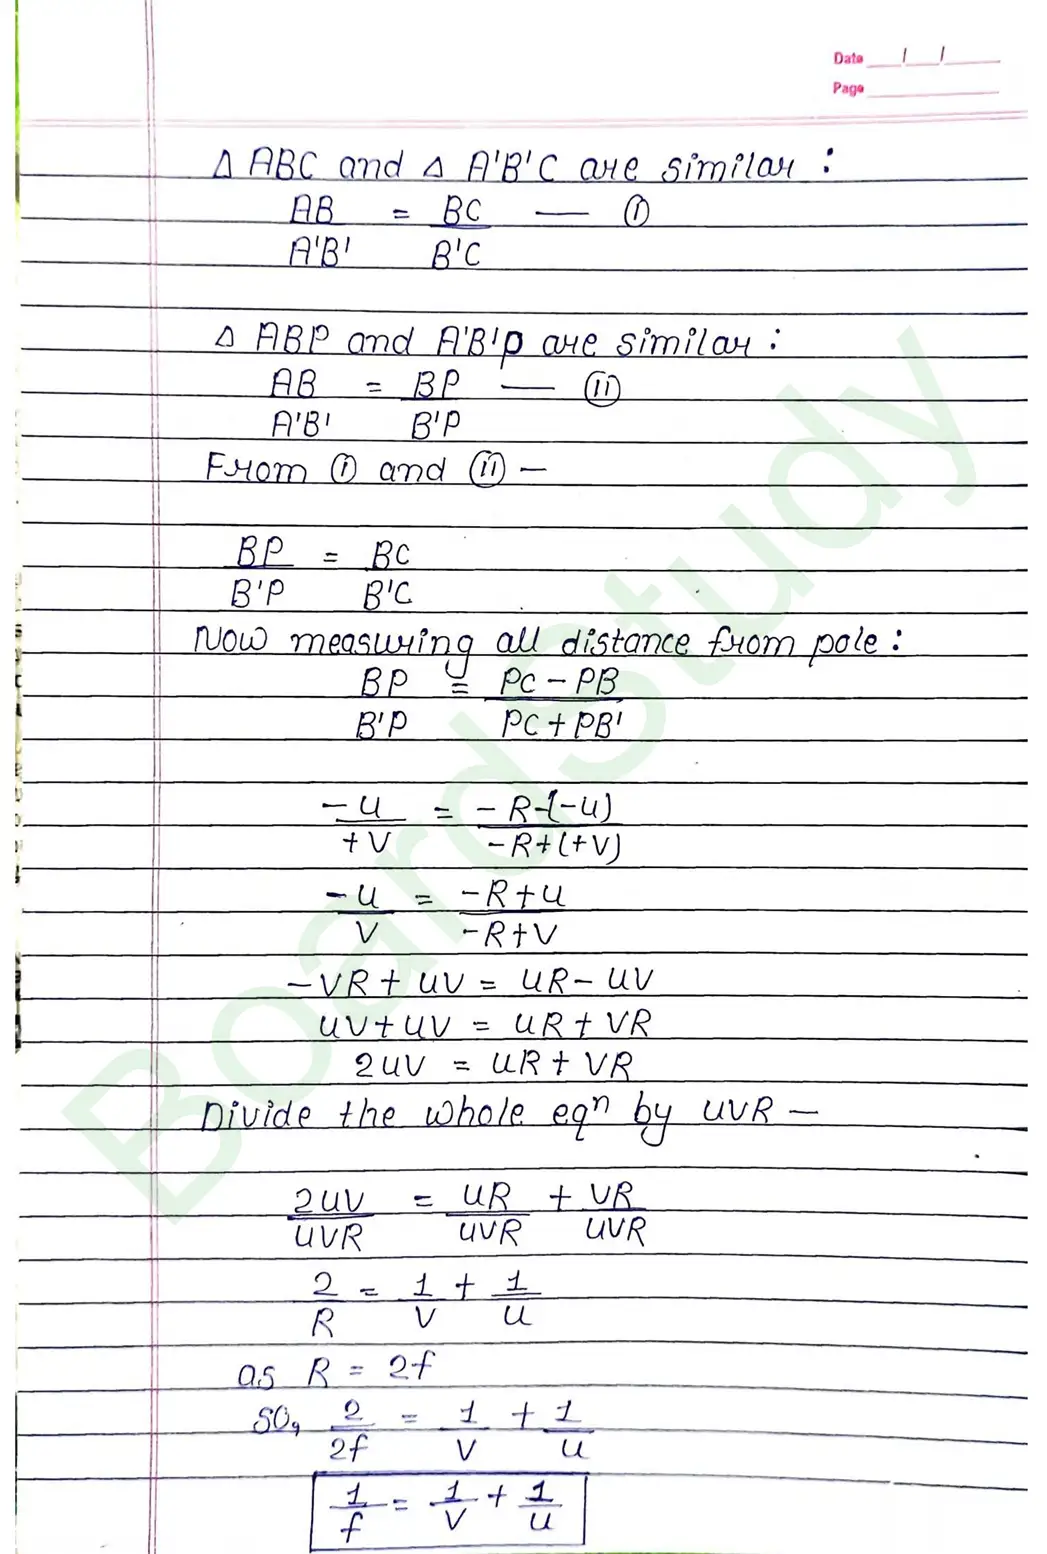 Date ___/___/____
Page ____________
Δ ABC and Δ A'B'C are similar :
AB = BC — (i)
A'B' B'C
Δ ABP and A'B'P are similar :
AB = BP — (ii)
A'B' B'P
From (i) and (ii) –
BP = BC
B'P B'C
Now measuring all distance from pole :
BP = PC - PB
B'P PC + PB'
-u = -R-(-u)
+v -R+(+v)
-u = -R+u
v -R+v
-VR + uv = uR - uv
uv + uv = uR + VR
2uv = uR + VR
Divide the whole eqⁿ by uvR –
2uv = uR + VR
uvR uvR uvR
2 = 1 + 1
R v u
as R = 2f
so, 2 = 1 + 1
2f v u
1 = 1 + 1
f v u
BoardStudy